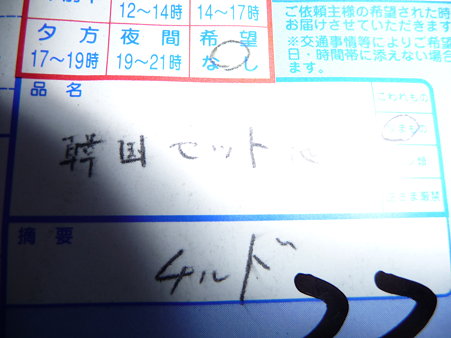 12〜14時 14〜17時
夕方 夜間 希望
17〜19時 19〜21時 なし
ご依頼主様の希望された時
お届けさせていただきます
※交通事情等によりご希望
日・時間帯に添えない場合
ます。
品名
こわれもの
韓国セット
なまもの
摘要
チルド